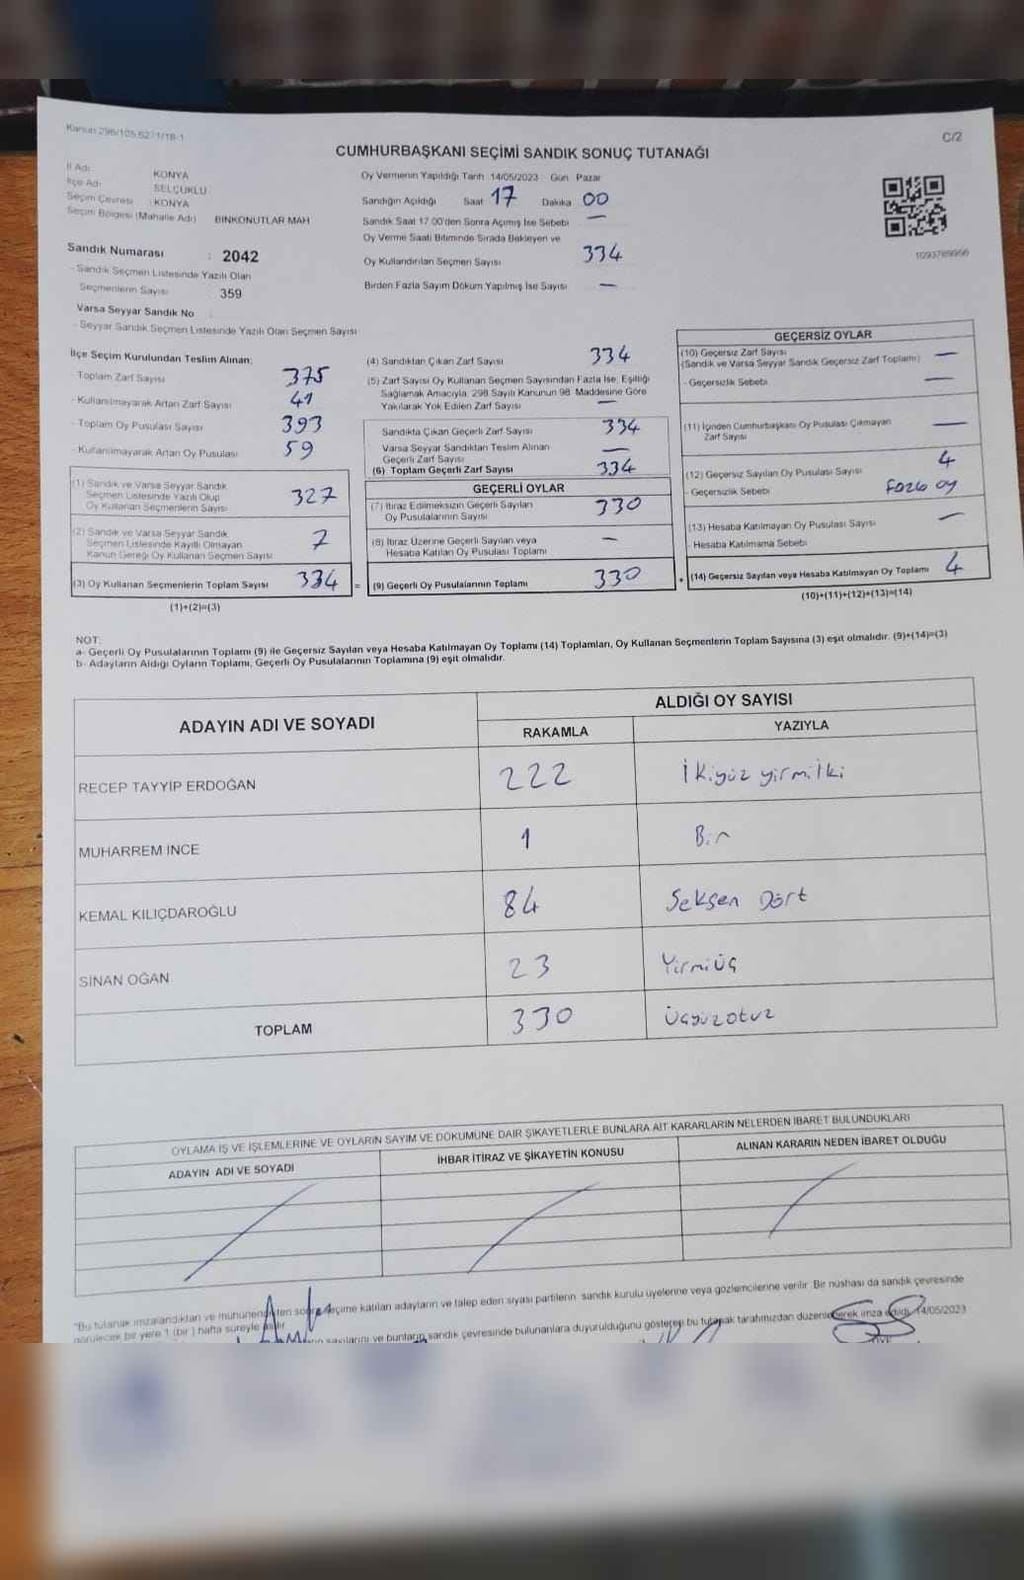 Kanun 298/105 6271/18-1
C/2
CUMHURBAŞKANI SEÇİMİ SANDIK SONUÇ TUTANAĞI
İl Adı : KONYA
İlçe Adı : SELÇUKLU
Seçim Çevresi : KONYA
Seçim Bölgesi (Mahalle Adı) BİNKONUTLAR MAH
Sandık Numarası : 2042
- Sandık Seçmen Listesinde Yazılı Olan
Seçmenlerin Sayısı 359
Varsa Seyyar Sandık No
- Seyyar Sandık Seçmen Listesinde Yazılı Olan Seçmen Sayısı
Oy Vermenin Yapıldığı Tarih 14/05/2023 Gün Pazar
Sandığın Açıldığı Saat 17 Dakika 00
Sandık Saat 17.00'den Sonra Açılmış İse Sebebi —
Oy Verme Saati Bitiminde Sırada Bekleyen ve
Oy Kullandırılan Seçmen Sayısı 334
Birden Fazla Sayım Döküm Yapılmış İse Sayısı —
İlçe Seçim Kurulundan Teslim Alınan;
- Toplam Zarf Sayısı 375
- Kullanılmayarak Artan Zarf Sayısı 41
- Toplam Oy Pusulası Sayısı 393
- Kullanılmayarak Artan Oy Pusulası 59
(1) Sandık ve Varsa Seyyar Sandık
Seçmen Listesinde Yazılı Olup
Oy Kullanan Seçmenlerin Sayısı 327
(2) Sandık ve Varsa Seyyar Sandık
Seçmen Listesinde Kayıtlı Olmayan
Kanun Gereği Oy Kullanan Seçmen Sayısı 7
(3) Oy Kullanan Seçmenlerin Toplam Sayısı 334 =
(1)+(2)=(3)
(4) Sandıktan Çıkan Zarf Sayısı 334
(5) Zarf Sayısı Oy Kullanan Seçmen Sayısından Fazla İse, Eşitliği
Sağlamak Amacıyla, 298 Sayılı Kanunun 98. Maddesine Göre
Yakılarak Yok Edilen Zarf Sayısı —
Sandıkta Çıkan Geçerli Zarf Sayısı 334
Varsa Seyyar Sandıktan Teslim Alınan
Geçerli Zarf Sayısı —
(6) Toplam Geçerli Zarf Sayısı 334
GEÇERLİ OYLAR
(7) İtiraz Edilmeksizin Geçerli Sayılan
Oy Pusulalarının Sayısı 330
(8) İtiraz Üzerine Geçerli Sayılan veya
Hesaba Katılan Oy Pusulası Toplamı —
(9) Geçerli Oy Pusulalarının Toplamı 330 +
GEÇERSİZ OYLAR
(10) Geçersiz Zarf Sayısı
(Sandık ve Varsa Seyyar Sandık Geçersiz Zarf Toplamı) —
- Geçersizlik Sebebi —
(11) İçinden Cumhurbaşkanı Oy Pusulası Çıkmayan
Zarf Sayısı —
(12) Geçersiz Sayılan Oy Pusulası Sayısı 4
- Geçersizlik Sebebi Fazla oy
(13) Hesaba Katılmayan Oy Pusulası Sayısı —
- Hesaba Katılmama Sebebi
(14) Geçersiz Sayılan veya Hesaba Katılmayan Oy Toplamı 4
(10)+(11)+(12)+(13)=(14)
NOT:
a- Geçerli Oy Pusulalarının Toplamı (9) ile Geçersiz Sayılan veya Hesaba Katılmayan Oy Toplamı (14) Toplamları, Oy Kullanan Seçmenlerin Toplam Sayısına (3) eşit olmalıdır. (9)+(14)=(3)
b- Adayların Aldığı Oyların Toplamı, Geçerli Oy Pusulalarının Toplamına (9) eşit olmalıdır.
ADAYIN ADI VE SOYADI
ALDIĞI OY SAYISI
RAKAMLA YAZIYLA
RECEP TAYYİP ERDOĞAN 222 İkiyüz yirmi İki
MUHARREM İNCE 1 Bir
KEMAL KILIÇDAROĞLU 84 Seksen Dört
SİNAN OĞAN 23 Yirmiüç
TOPLAM 330 Üçyüzotuz
OYLAMA İŞ VE İŞLEMLERİNE VE OYLARIN SAYIM VE DÖKÜMÜNE DAİR ŞİKAYETLERLE BUNLARA AİT KARARLARIN NELERDEN İBARET BULUNDUKLARI
ADAYIN ADI VE SOYADI İHBAR İTİRAZ VE ŞİKAYETİN KONUSU ALINAN KARARIN NEDEN İBARET OLDUĞU
"Bu tutanak imzalandıktan ve sonra seçime katılan adayların ve talep eden siyasi partilerin sandık kurulu üyelerine veya gözlemcilerine verilir. Bir nüshası da sandık çevresinde
görülecek bir yere 1 (bir) hafta süreyle asılır
sayılarını ve bunların sandık çevresinde bulunanlara duyurulduğunu gösteren bu tutanak tarafımızdan düzenlenerek imza edildi. 14/05/2023